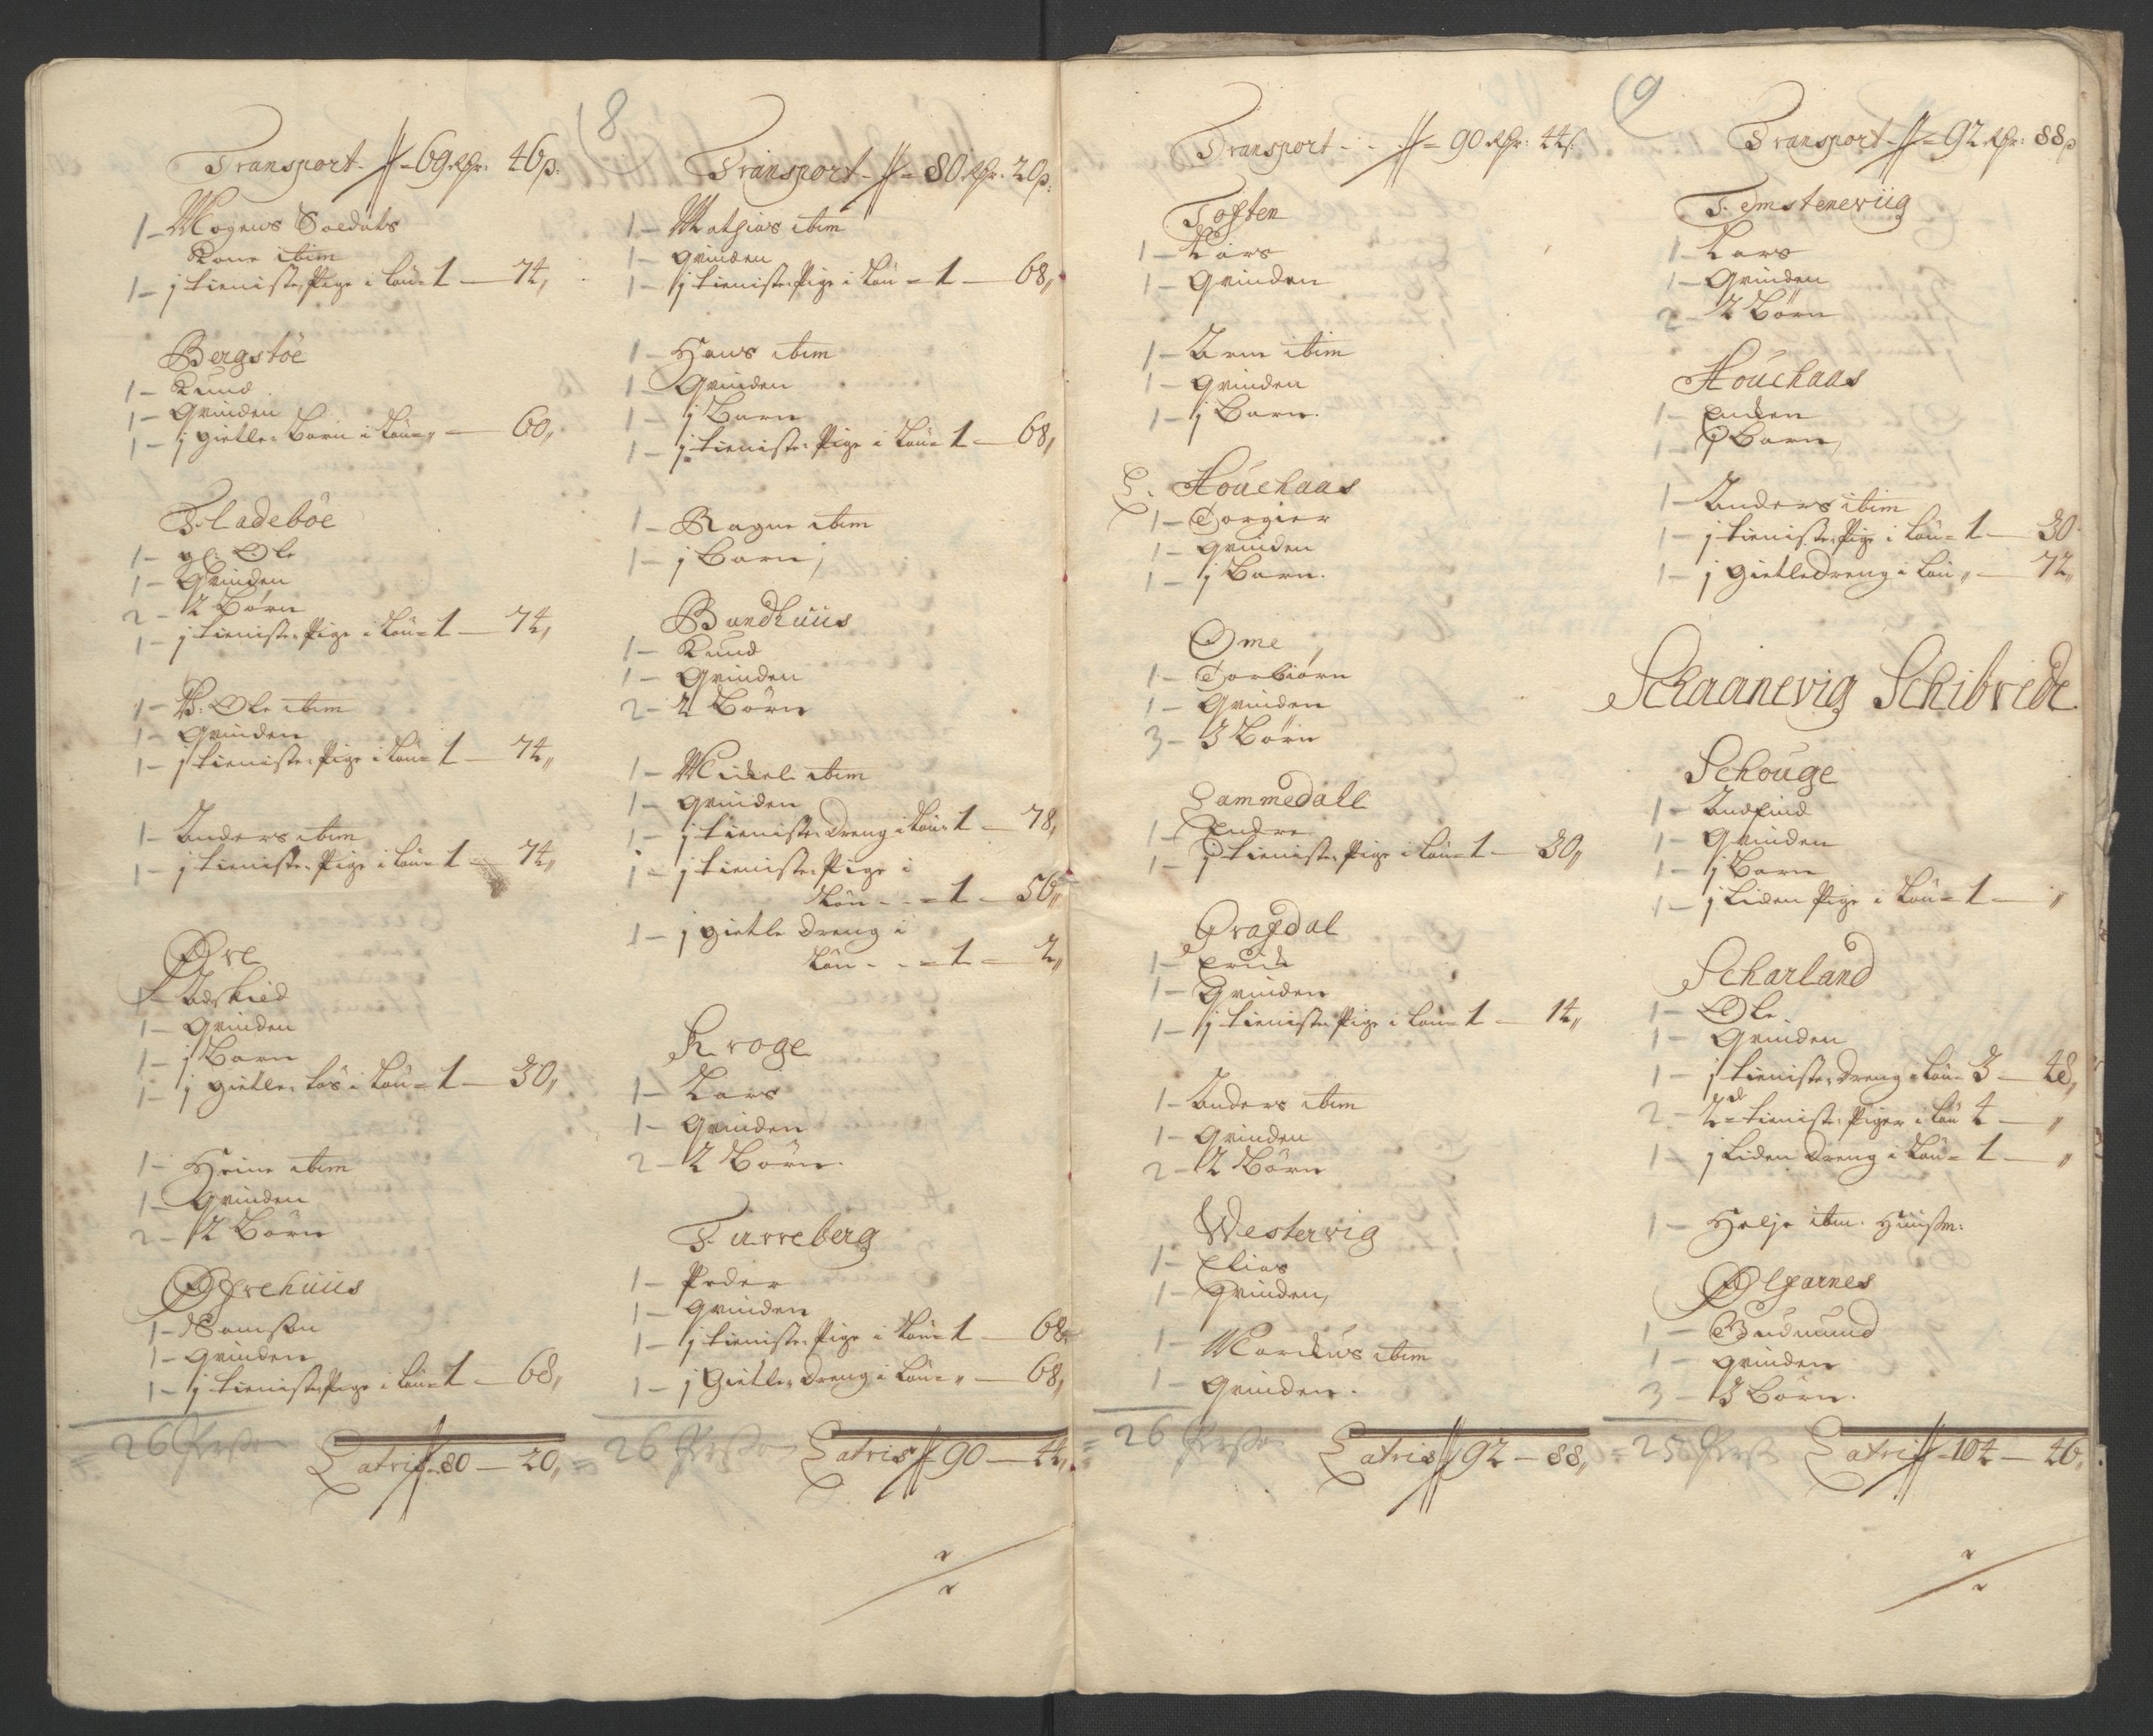 8
Transport - 69 Rdr: 46 β:
1 - Mogens Soldats
Kone ibim
1 - j tieniste Pige i Løn = 1 — 74,,
Bergstøe
1 - Knud
1 - Qvinden
1 - j gietle Barn i Løn = ,, — 60,,
Fladebøe
1 - gl: Ole
1 - Qvinden
2 - 2 Børn
1 - j tieniste Pige i Løn = 1 — 74,,
1 - V: Ole ibim
1 - Qvinden
1 - j tieniste Pige i Løn = 1 — 74,,
1 - Anders ibim
1 - j tieniste Pige i Løn = 1 — 74,,
Øre
1 - Adskied
1 - Qvinden
1 - j Barn
1 - j gietle tøs i Løn = 1 — 30,,
1 - Heine ibim
1 - Qvinden
2 - 2 Børn
Øfrehuus
1 - Samson
1 - Qvinden
1 - j tieniste Pige i Løn = 1 — 68,,
= 26 Perso
Latris 80 — 20,,
Transport - 80 Rdr. 20 β:
1 - Mathias ibim
1 - Qvinden
1 - j tieniste Pige i Løn = 1 — 68,,
1 - Hans ibim
1 - Qvinden
1 - j Barn
1 - j tieniste Pige i Løn = 1 — 68,,
1 - Ragne ibim
1 - j Barn,
Bondhuus
1 - Knud
1 - Qvinden
2 - 2 Børn
1 - Mickel ibim
1 - Qvinden
1 - j tieniste Dreng i Løn = 1 — 78,,
1 - j tieniste Pige i
Løn - - = 1 — 56,,
1 - j gietle Dreng i
Løn - - = 1 — 2,,
Kroge
1 - Lars
1 - Qvinden
2 - 2 Børn.
Furreberg
1 - Peder
1 - Qvinden
1 - j tieniste Pige i Løn = 1 — 68,,
1 - j Gietle Dreng i Løn = ,, — 68,,
= 26 Perso
Latris 90 — 44,,
9
Transport - - - 90 Rdr: 44 β
Toften
1 - Lars
1 - Qvinden
1 - Arne ibim
1 - Qvinden
1 - j Barn.
L. Houchaas
1 - Torgier
1 - Qvinden
1 - j Barn.
Ome
1 - Torbiørn
1 - Qvinden
3 - 3 Børn
Lammedall
1 - Endre
1 - j tieniste Pige i Løn = 1 — 30,,
Qvafdal
1 - Erick
1 - Qvinden
1 - j tieniste Pige i Løn = 1 — 14,,
1 - Anders ibim
1 - Qvinden
2 - 2 Børn
Westervig
1 - Elias
1 - Qvinden,
1 - Marckus ibim
1 - Qvinden.
= 26 Perso
Latris 92 — 88,,
Transport - 92 Rdr: 88 β
Femsteneviig
1 - Lars
1 - Qvinden
2 - 2 Børn
Houchaas
1 - Encken
1 - j Barn,
1 - Anders ibim
1 - j tieniste Pige i Løn = 1 — 30
1 - j gietledreng i Løn ,, — 72,,
Schaanevig Schibrede
Schouge
1 - Andfind
1 - Qvinden
1 - j Barn
1 - j Liden Pige i Løn = 1 — ,,
Scharland
1 - Ole
1 - Qvinden
1 - j tieniste Dreng i Løn = 3 — 48,,
2 - 2de tieniste Piger i Løn 4 — ,,
1 - j Liden Dreng i Løn = 1 — ,,
1 - Helje ibm. Huusm:
Ølfarnes
1 - Gudmund
1 - Qvinden
3 - 3 Børn.
= 25 Perso
Latris 104 — 46,,